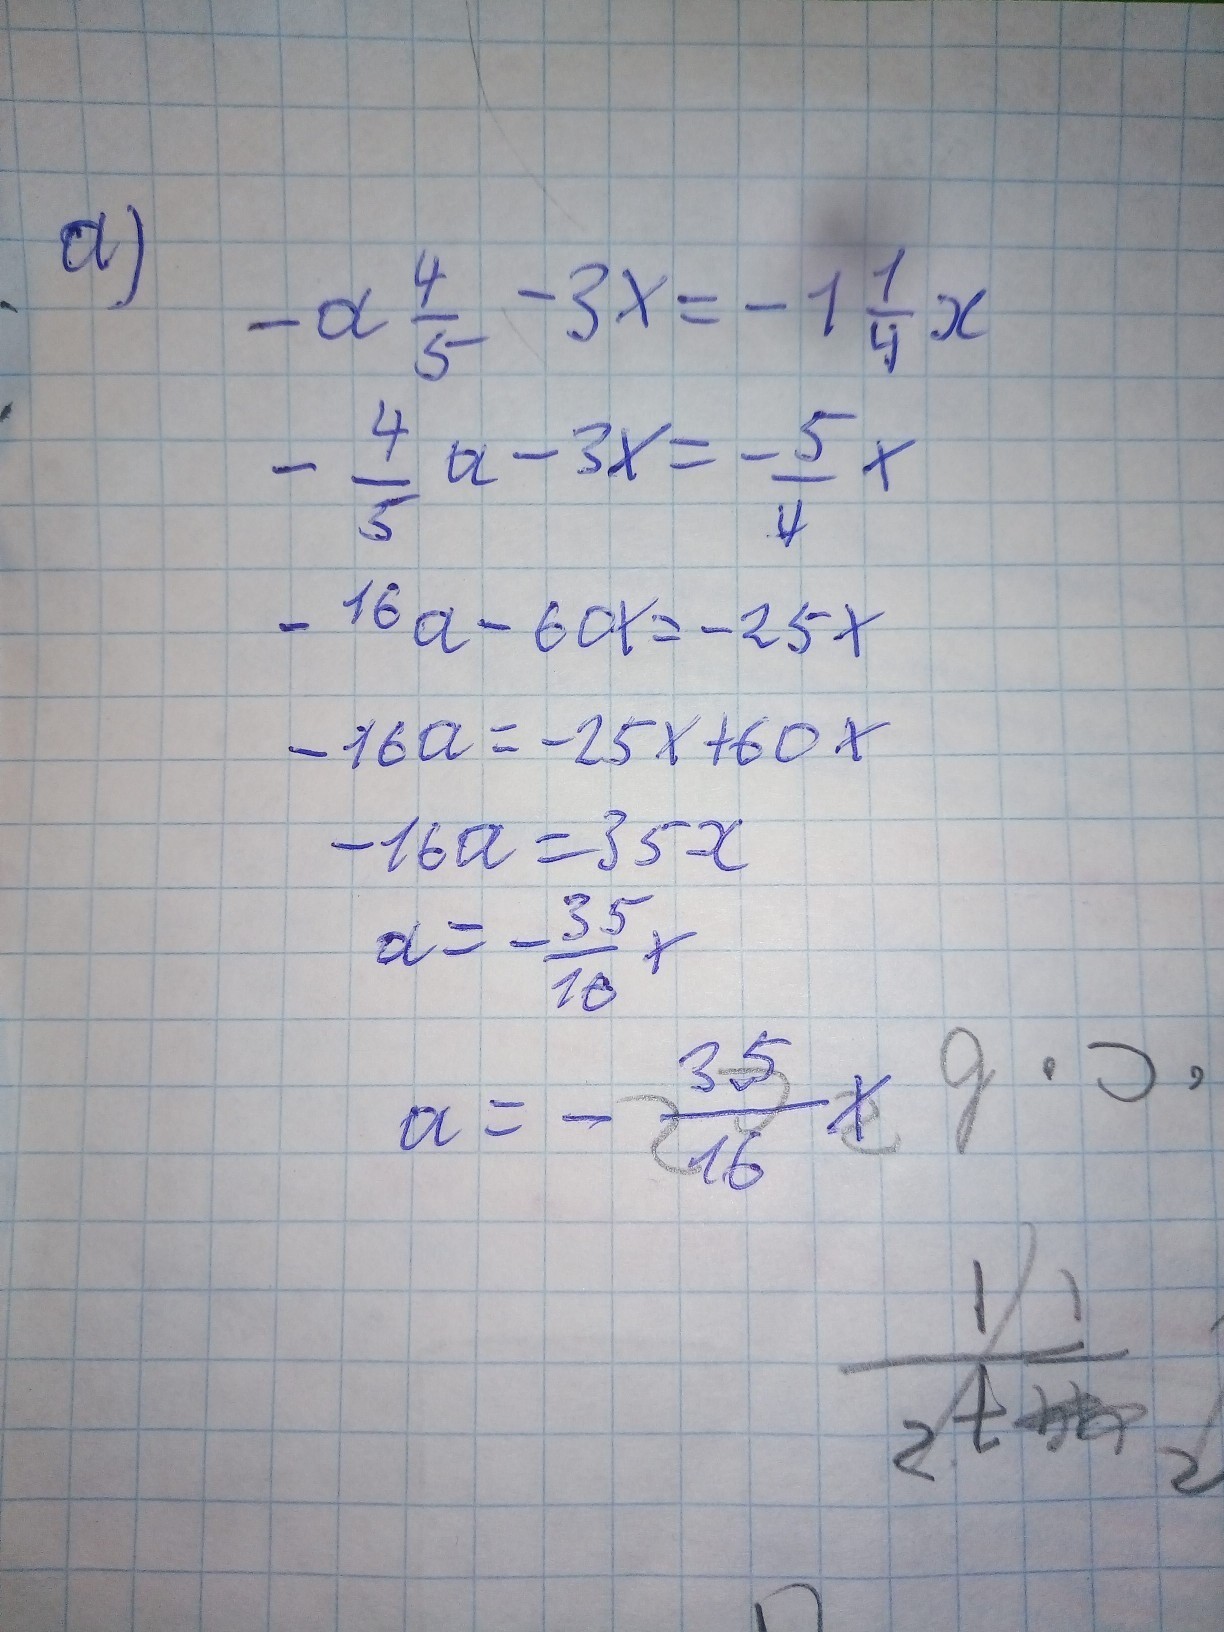 a)
-a 4/5 - 3x = -1 1/4 x
- 4/5 a - 3x = - 5/4 x
- 16a - 60x = -25x
-16a = -25x + 60x
-16a = 35x
a = - 35/16 x
a = - 35/16 x